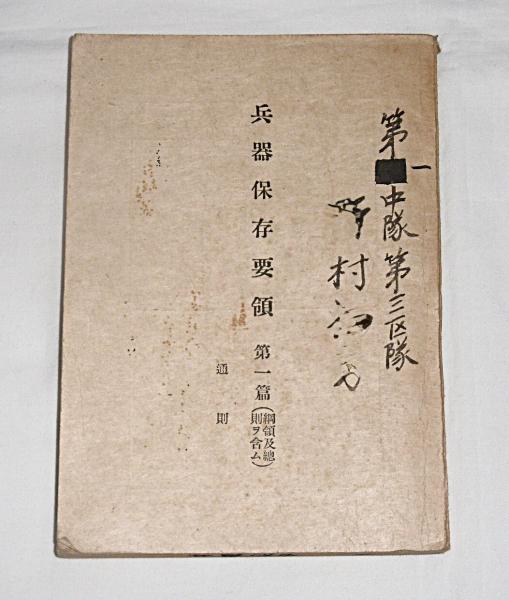 第一中隊第三区隊
村
兵器保存要領 第一篇(綱領及總則ヲ含ム)
通則